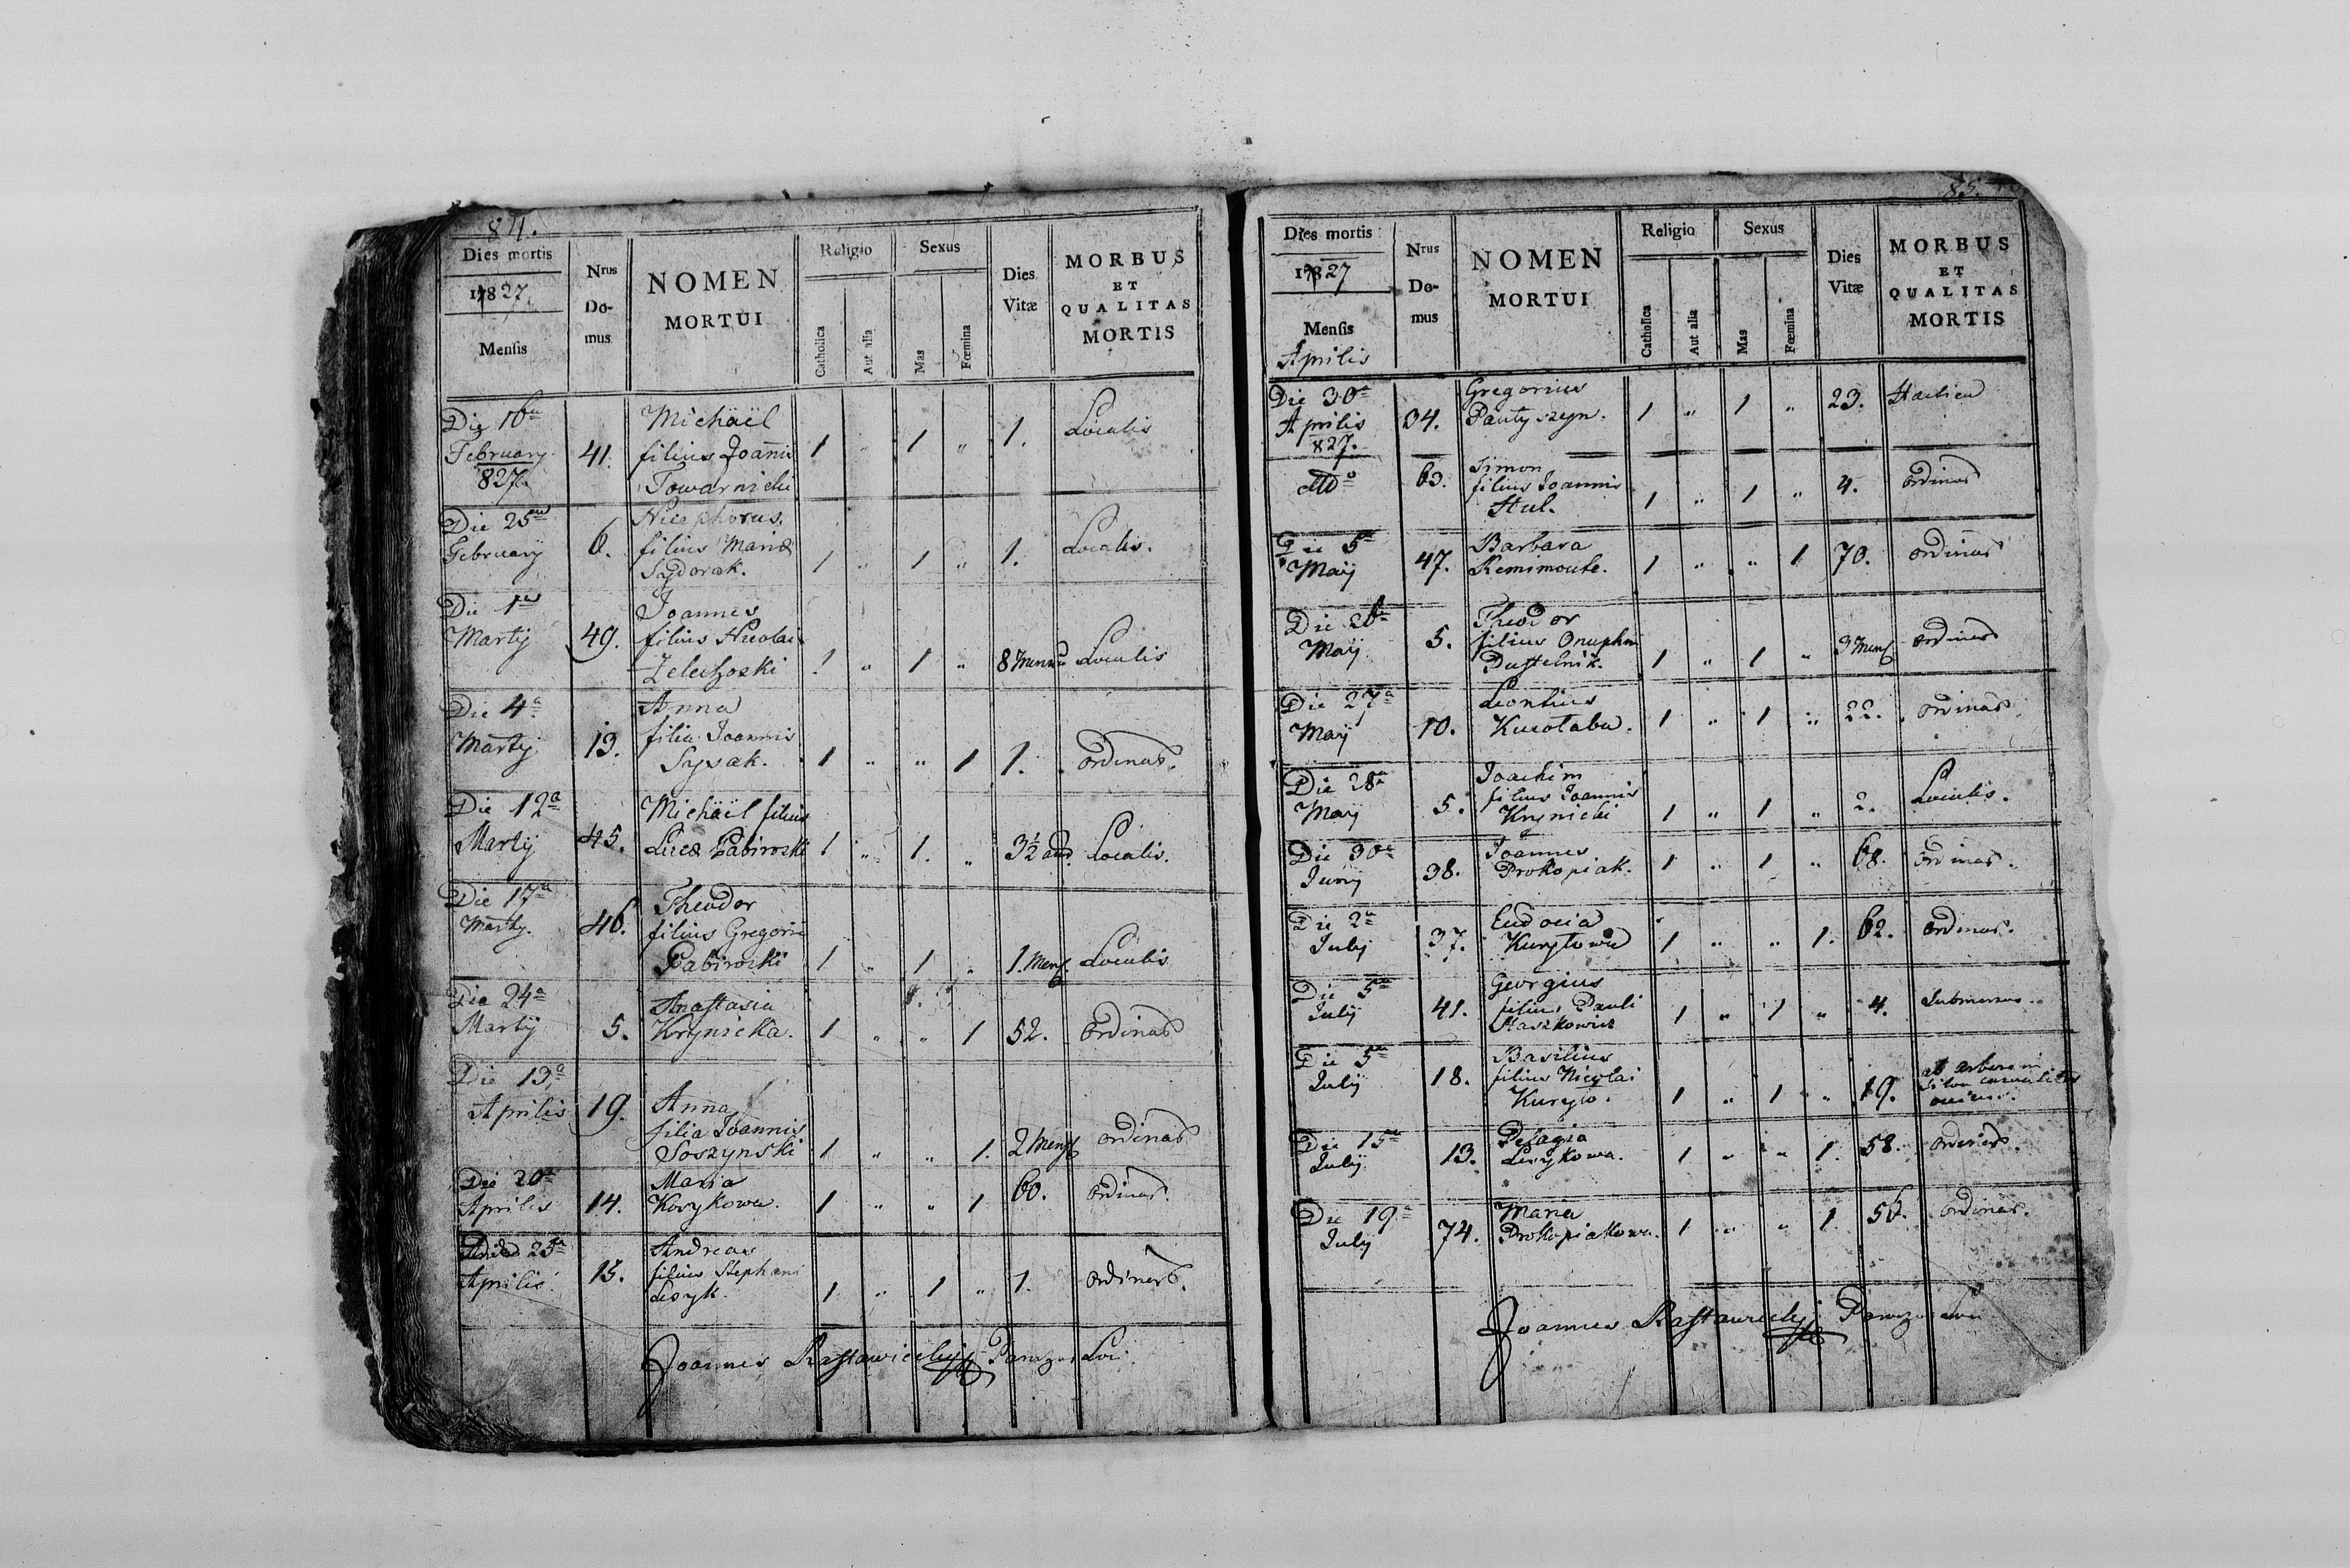 84.
Dies mortis
1827.
Mensis
Nrus
Do-
mus
NOMEN
MORTUI
Religio
Catholica
Aut alia
Sexus
Mas
Fœmina
Dies
Vitæ
MORBUS
ET
QUALITAS
MORTIS
Die 16ta
February
827.
41.
Michäel
filius Joannis
Towarnicki
1 " 1 " 1.
Localis
Die 25ta
Februarij
6.
Nicephorus
filius Mariæ
Sydorak.
1 " 1 " 1.
Localis.
Die 1ma
Martij
49.
Joannes
filius Nicolai
1 " 1 "
Localis
Die 4ta
Martij
13.
Anna
filia Joannis
Sysak.
1 " " 1 1.
ordinar.
Die 12a
Martij
45.
Michäel filius
Lucæ
1 " 1. "
3½ ann.
Localis.
Die 17a
Martij.
46.
Theodor
filius Gregorii
1 " 1 "
1. Mens.
Localis
Die 24a
Martij
5.
Anastasia
Krynicka.
1 " " 1 52.
ordinar
Die 13a
Aprilis
19.
Anna
filia Joannis
Soszynski
1 " " 1.
2 Mens
ordinar
Die 20a
Aprilis
14.
Maria
1 " " 1 60.
ordinar.
25ta
Aprilis
15.
Andreas
filius Stephani
1 " 1 " 1.
ordinar.
Joannes Rastawiecky Loci
85.
Dies mortis
1827
Mensis
Aprilis
Nrus
Do-
mus
NOMEN
MORTUI
Religio
Catholica
Aut alia
Sexus
Mas
Fœmina
Dies
Vitæ
MORBUS
ET
QUALITAS
MORTIS
Die 30a
Aprilis
827.
34.
Gregorius
1 " 1 " 23.
63.
Simon
filius Joannis
1 " 1 " 4.
ordinar
Die 5ta
Maij
47.
Barbara
1 " " 1 70.
ordinar
Die 26ta
Maij
5.
Theodor
filius Onuphrii
Pustelnik.
1 " 1 "
3 Mens
ordinar
Die 27a
Maij
10.
Leontius
1 " 1 " 22.
ordinar.
Die 28a
Maij
5.
Joachim
filius Joannis
Krynicki
1 " 1 " 2.
Localis.
Die 30a
Junij
38.
Joannes
Prokopiak.
1 " 1 " 68.
ordinar.
Die 2a
July
37.
Eudocia
Kuryłowa
1 " " 1. 62.
ordinar.
Die 5ta
July
41.
Georgius
filius Pauli
Staszkowicz
1 " 1 " 4.
Submersus.
Die 5ta
July
18.
Basilius
filius Nicolai
Kuryło.
1 " 1 " 19.
ab arbore in
Die 15ta
July
13.
Pelagia
1 " " 1. 58.
ordinar.
Die 19a
July
74.
Maria
Prokopiakowa.
1 " " 1. 56.
ordinar.
Joannes Rastawiecky